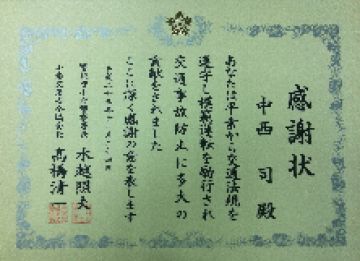 感謝状
中西 司 殿
あなたは平素から交通法規を
遵守し模範運転を励行され
交通事故防止に多大の
貢献をされました
ここに深く感謝の意を表します
水越照夫
高橋清一